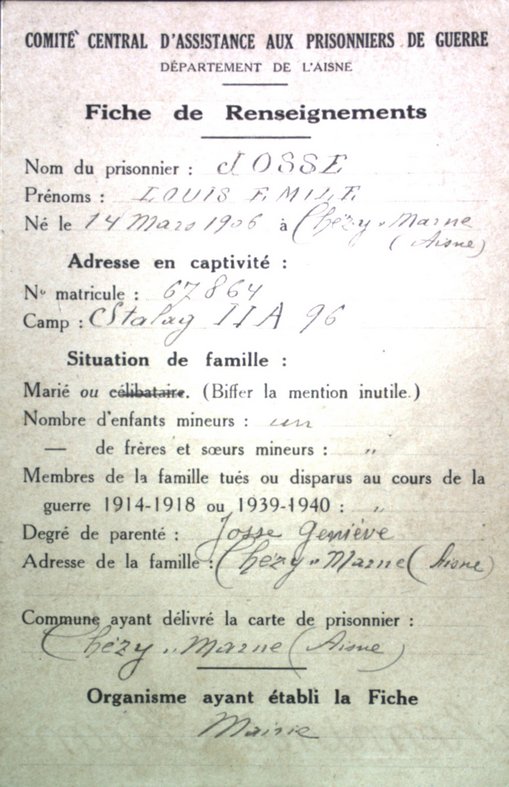 COMITÉ CENTRAL D'ASSISTANCE AUX PRISONNIERS DE GUERRE
DÉPARTEMENT DE L'AISNE
Fiche de Renseignements
Nom du prisonnier : JOSSE
Prénoms : LOUIS EMILE
Né le 14 Mars 1906 à Chézy s/ Marne
(Aisne)
Adresse en captivité :
N° matricule : 67864
Camp : Stalag IIA 96
Situation de famille :
Marié ou célibataire. (Biffer la mention inutile.)
Nombre d'enfants mineurs : un
— de frères et sœurs mineurs : "
Membres de la famille tués ou disparus au cours de la
guerre 1914-1918 ou 1939-1940 : "
Degré de parenté : Josse Geniève
Adresse de la famille : Chézy s/ Marne (Aisne)
Commune ayant délivré la carte de prisonnier :
Chézy s/ Marne (Aisne)
Organisme ayant établi la Fiche
Mairie